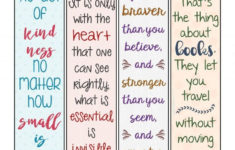 act of
kind
ness
no
matter
how
small
is
it is only
with the
heart
that one
can see
rightly.
what is
essential
is
invisible
braver
than you
believe,
and
stronger
than you
seem,
and
That's the
thing about
books.
They let
you
travel
without
moving